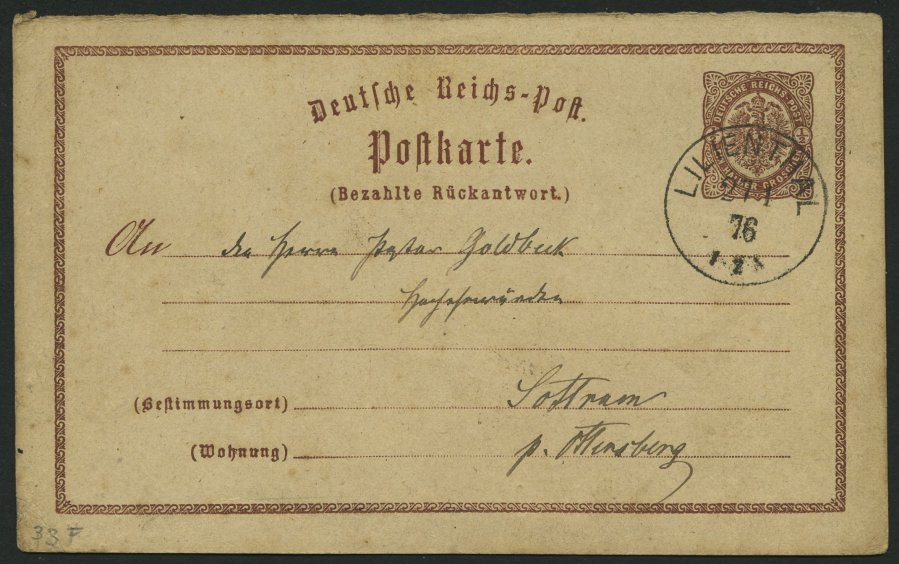 Deutsche Reichs-Post.
Postkarte.
(Bezahlte Rückantwort.)
DEUTSCHE REICHS-POST
LILIENTHAL
76
An den Herrn Pastor Goldbeck
Hochehrwürden
(Bestimmungsort) Sottrum
(Wohnung) p. Ottersberg
33 F